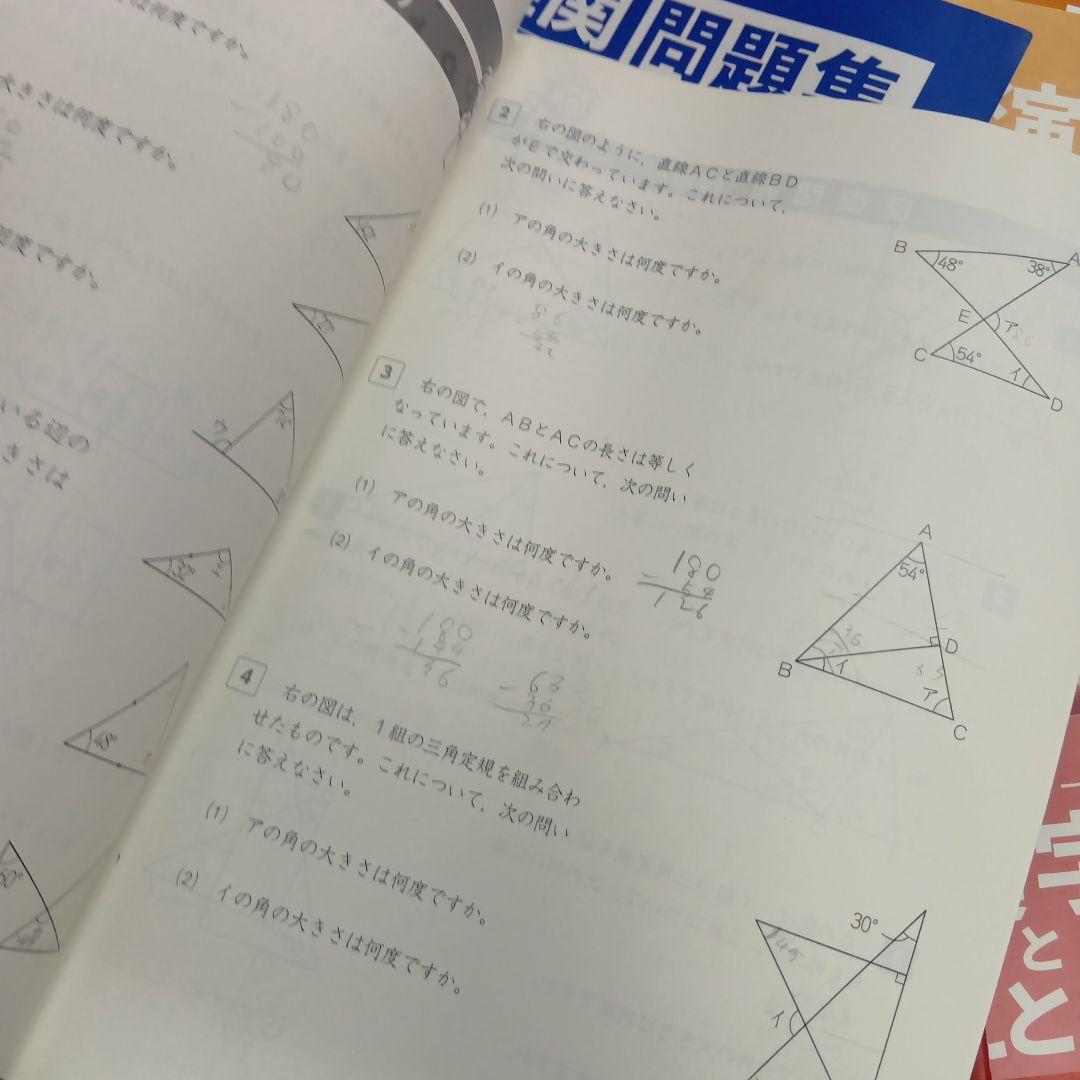 は何度ですか。
大きさは何度ですか。
何度ですか。
いる辺の
きさは
関 問題集
演
2 右の図のように，直線ACと直線BD
がEで交わっています。これについて，
次の問いに答えなさい。
(1) アの角の大きさは何度ですか。
(2) イの角の大きさは何度ですか。
86
B
A
48°
38°
E
ア
86
C
54°
イ
D
3 右の図で，ABとACの長さは等しく
なっています。これについて，次の問い
に答えなさい。
(1) アの角の大きさは何度ですか。
(2) イの角の大きさは何度ですか。
180
126
180
144
36
63
36
27
A
54°
36
B
イ
D
63
ア
C
4 右の図は，1組の三角定規を組み合わ
せたものです。これについて，次の問い
に答えなさい。
(1) アの角の大きさは何度ですか。
(2) イの角の大きさは何度ですか。
30°
45
イ
と
と